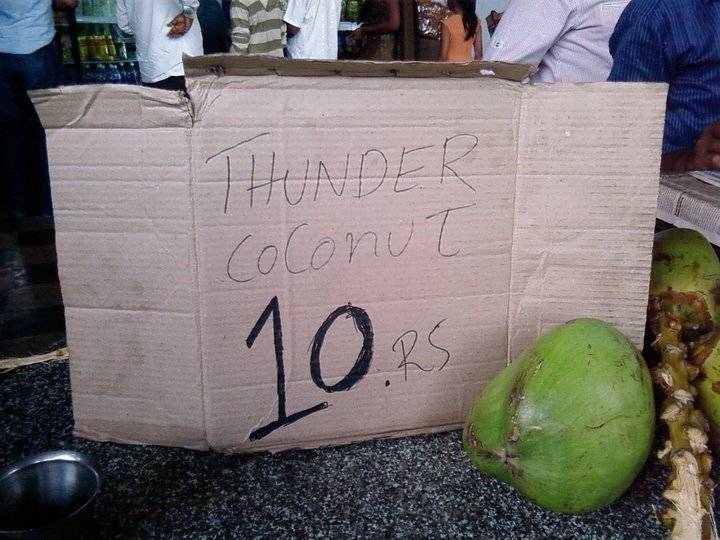 THUNDER
COCONUT
10.RS